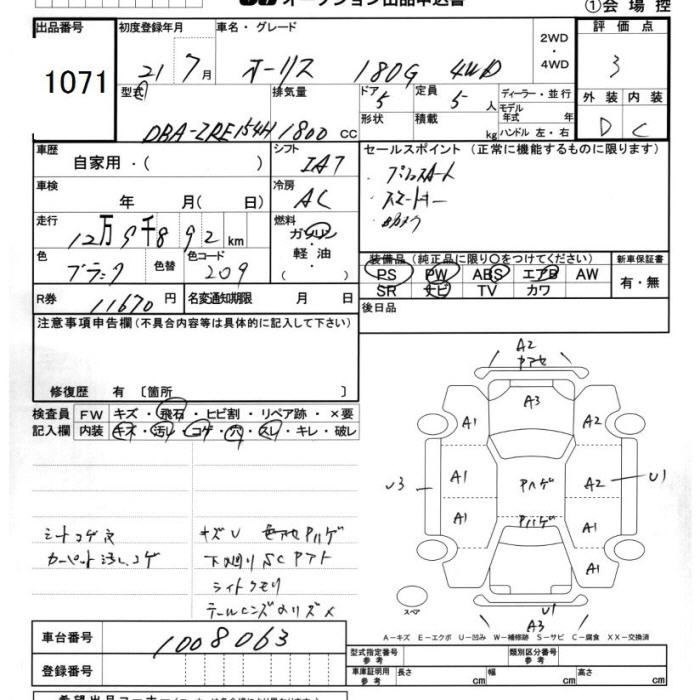 オークション出品申込書
①会場控
出品番号 初度登録年月 車名・グレード 2WD・4WD 評価点
1071 21 7月 オーリス 180G 4WD 3
型式 排気量 ドア 定員 ディーラー・並行 外装 内装
DBA-ZRE154H 1800 cc 5 5人 モデル年式 年 D C
形状 積載 kg ハンドル 左・右
車歴 シフト セールスポイント (正常に機能するものに限ります)
自家用・( ) IA7
・プッシュスタート
車検 冷房 ・スマートキー
年 月( 日) AC
走行 燃料
12万9千892km ガソリン・軽油・( )
色 色替 色コード 装備品(純正品に限り○をつけてください) 新車保証書
ブラック 209 PS PW ABS エアB AW 有・無
SR ナビ TV カワ
R券 11670円 名変通知期限 月 日 後日品
注意事項申告欄(不具合内容等は具体的に記入して下さい)
修復歴 有〔箇所 〕
検査員 FW キズ・飛石・ヒビ割・リペア跡・×要
記入欄 内装 キズ・汚レ・コゲ・穴・スレ・キレ・破レ
A2
A3
A1 A2
U3 A1 Pハゲ A2 U1
A1 Pハゲ A1
A1
スペア U1
A3
シートコゲ穴 キズU 色アセPハゲ
カーペット汚レコゲ 下廻りSC
ライトクモリ
テールレンズ
A－キズ E－エクボ U－凹み W－補修跡 S－サビ C－腐食 XX－交換済
車台番号 1008063
登録番号
型式指定番号 参考 類別区分番号 参考
車庫証明用 参考 長さ cm 幅 cm 高さ cm